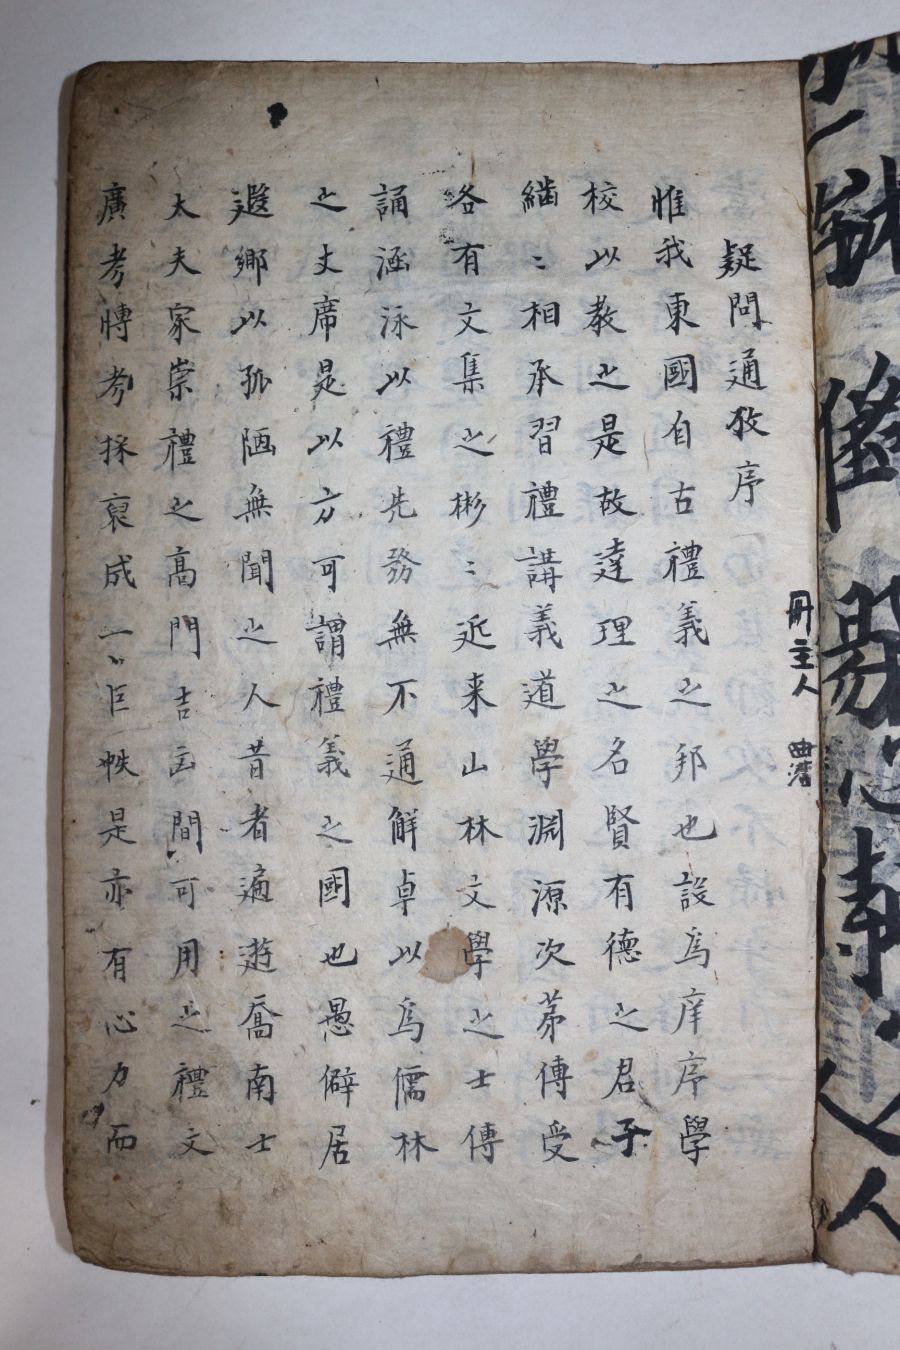 疑問通攷序
惟我東國自古禮義之邦也設爲庠序學
校以敎之是故達理之名賢有德之君子
繼〻相承習禮講義道學淵源次苐傳受
各有文集之彬〻近来山林文學之士傳
誦涵泳以禮先發無不通解卓以爲儒林
之丈席是以方可謂禮義之國也愚僻居
遐鄉以孤陋無聞之人昔者遍遊喬南士
大夫家崇禮之高門吉凶間可用之禮文
廣考博考採裒成一巨帙是亦有心力而
冊主人